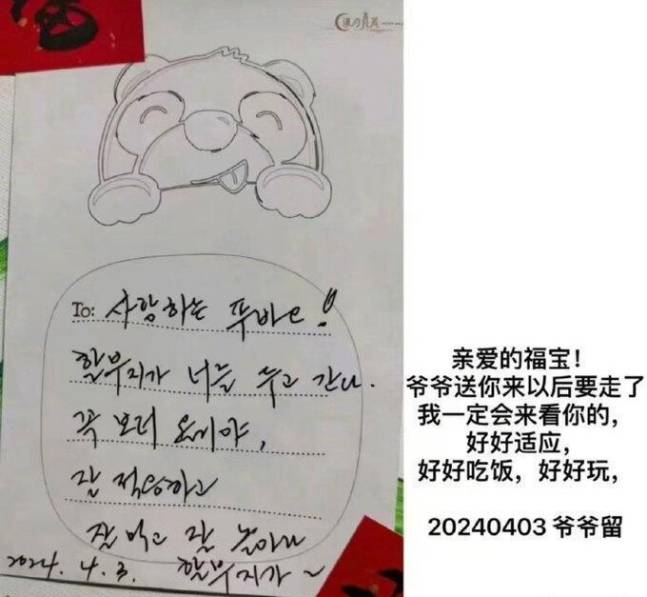 To: 사랑하는 푸바오!
할부지가 너를 두고 간다.
꼭 보러 올게야,
잘 적응하고
잘 먹고 잘 놀아라
2024. 4. 3. 할부지가~
亲爱的福宝！
爷爷送你来以后要走了
我一定会来看你的，
好好适应，
好好吃饭，好好玩，
20240403 爷爷留